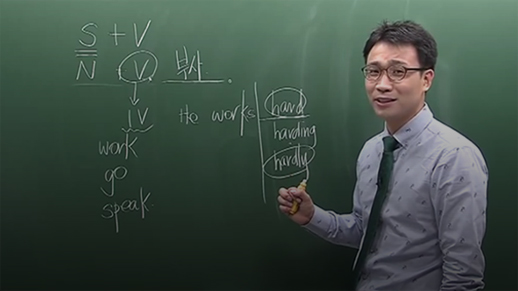 S + V
N V 부사.
IV
work
go
speak
He works hard
harding
hardly